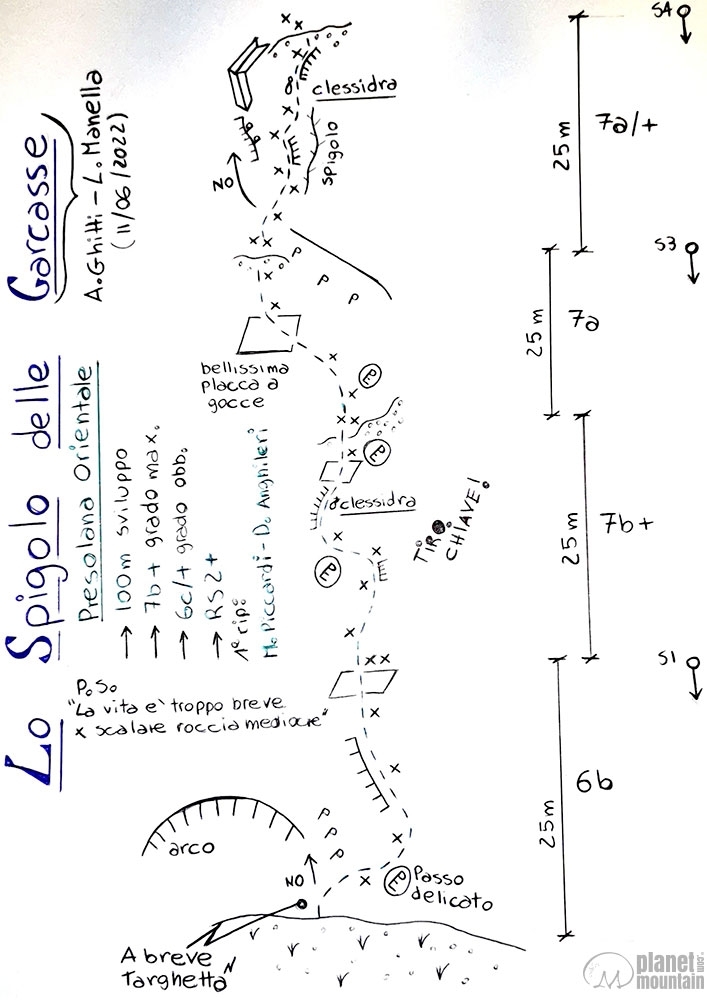 Lo Spigolo delle Garcasse
A. Ghitti - L. Manella
(11/06/2022)
Presolana Orientale
→ 100m sviluppo
→ 7b+ grado max.
→ 6c/+ grado obb.
→ RS2+
1° rip:
M. Piccardi - D. Anghileri
P.S.
"La vita e' troppo breve
x scalare roccia mediocre"
clessidra
spigolo
NO
P
P
P
bellissima
placca a
gocce
PE
PE
clessidra
PE
TIRO
CHIAVE!
arco
P
P
P
NO
PE
Passo
delicato
A breve
Targhetta
S4
7a/+
25m
S3
7a
25m
7b+
25m
S1
6b
25m
planetmountain.com